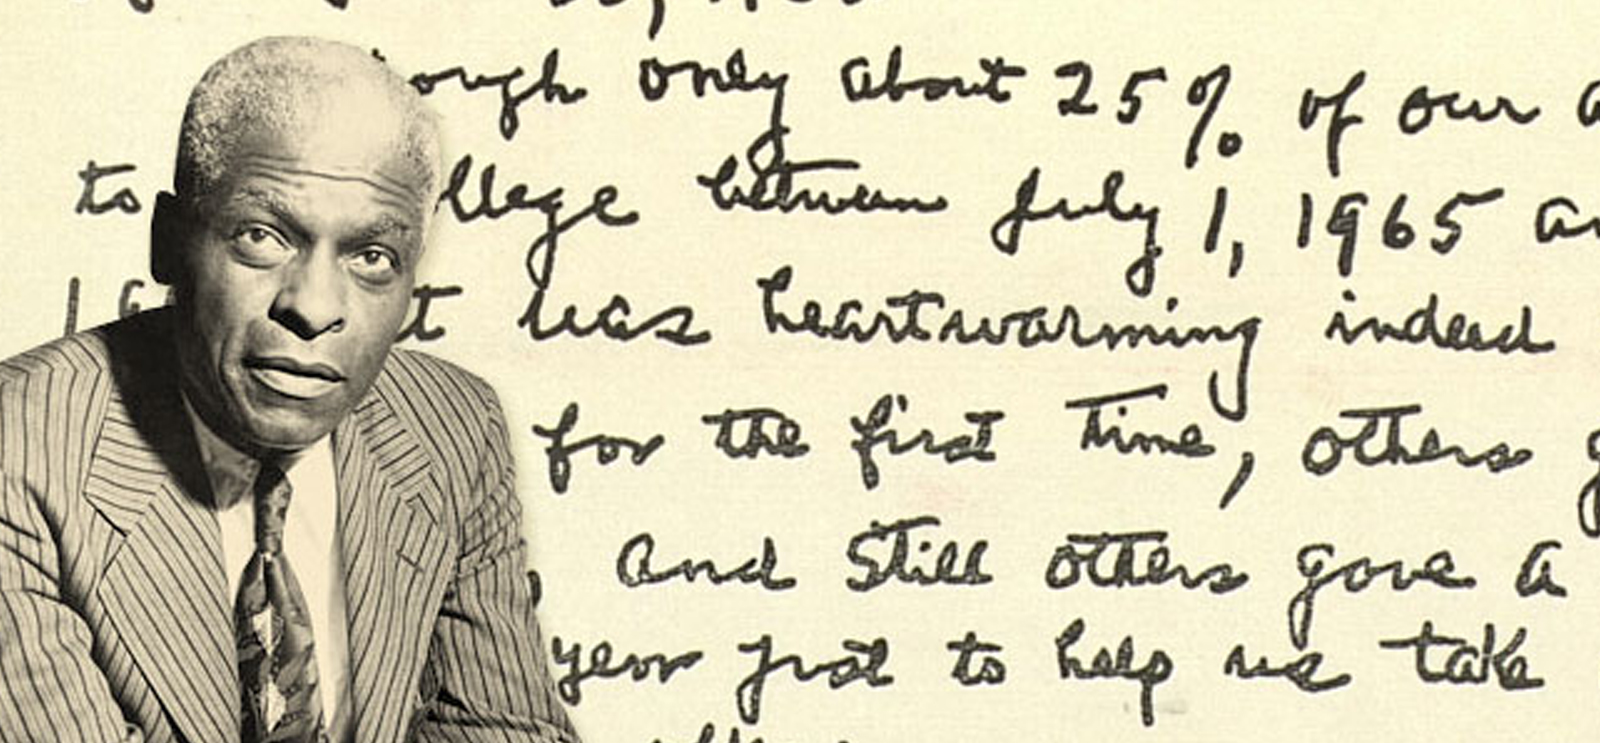 ough only about 25% of our a
to llege between July 1, 1965 a
t was heartwarming indeed
for the first time, others g
, and still others gave a
year just to help us take